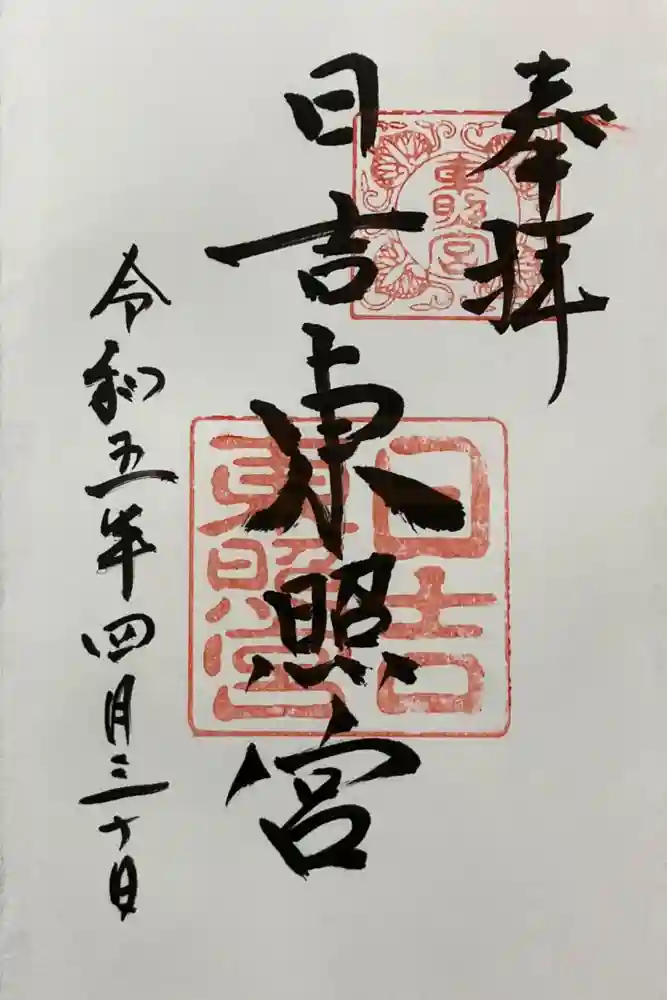 奉拝
東照宮
日吉東照宮
日吉東照宮
令和五年四月三十日